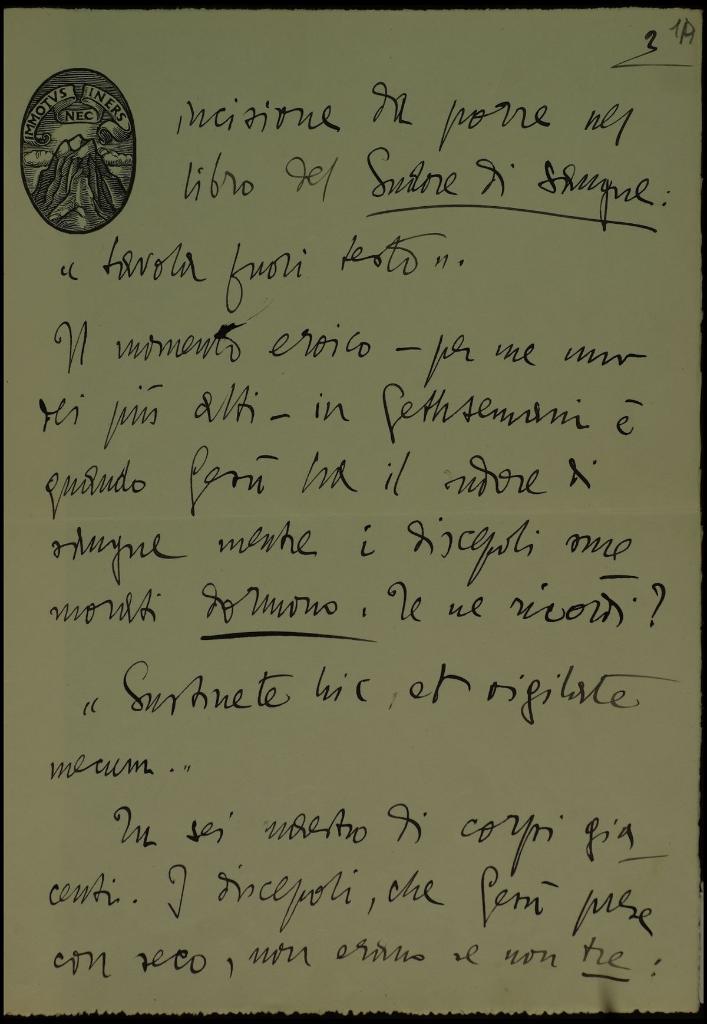 3 1A
IMMOTVS NEC INERS
incisione da porre nel
libro del Sudore di sangue:
"tavola fuori testo".
Il momento eroico - per me uno
dei più alti - in Gethsemani è
quando Gesù ha il sudore di
sangue mentre i discepoli sme
morati dormono. Te ne ricordi?
"Sustinete hic, et vigilate
mecum."
Tu sei maestro di corpi gia
centi. I discepoli, che Gesù prese
con seco, non erano se non tre: